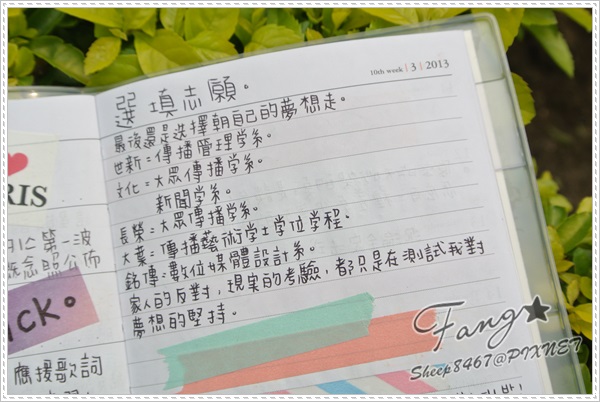 10th week | 3 | 2013
選填志願。
最後還是選擇朝自己的夢想走。
世新=傳播管理学系。
文化=大眾傳播学系。
新聞学系。
長榮=大眾傳播学系。
大葉=傳播藝術学士学位学程。
銘傳=數位媒體設計系。
家人的反對,現実的考驗,都只是在測試我對
夢想的堅持。
RIS
第一波
念照公佈
ick。
應援歌詞
Fang★
Sheep8467@PIXNET